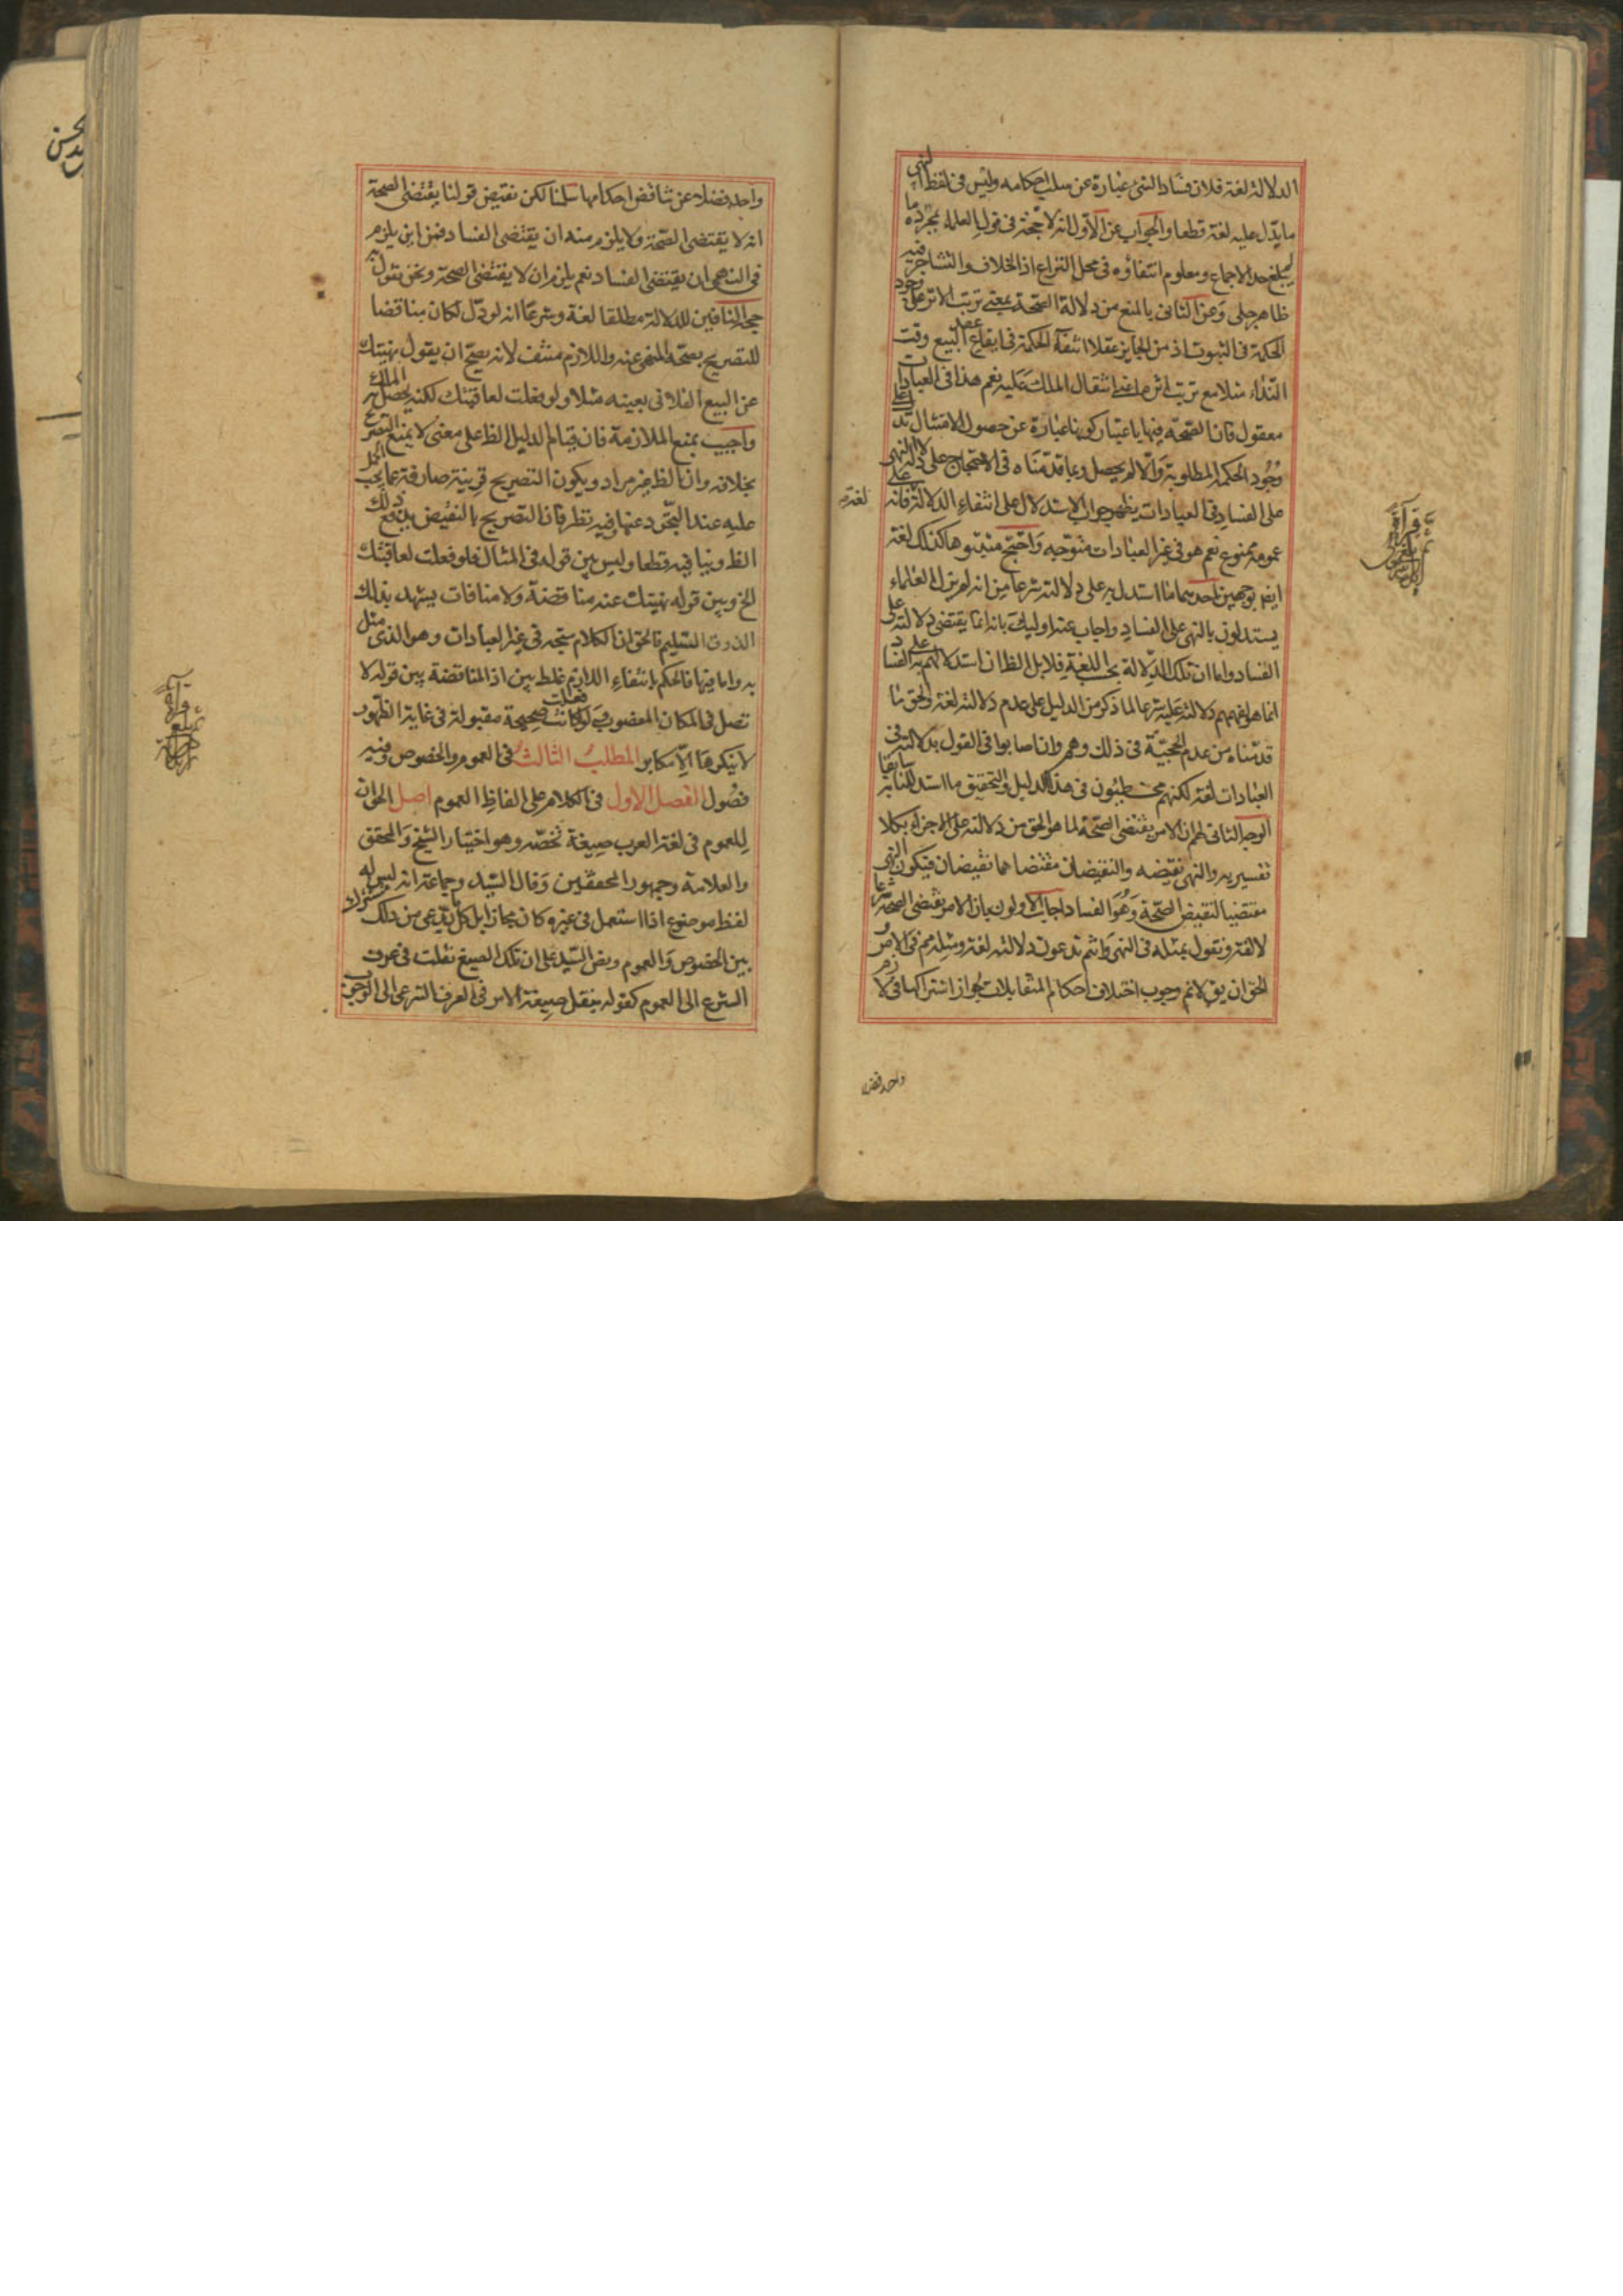 الدلالة لغة فلان فساد الشئ عبارة عن سلب احكامه وليس فى لفظ النهى
ما يدل عليه لغة قطعا والجواب عن الاول انه لا حجة فى قول العلماء بمجرده ما
لم يبلغ حد الاجماع ومعلوم انتفاؤه فى محل النزاع اذ الخلاف والتشاجر فيه
ظاهر جلى وعن الثانى بالمنع من دلالة الصحة بمعنى ترتب الاثر على وجود
الحكمة فى الثبوت اذ من الجايز عقلا انتفاء الحكمة فى ايقاع عقد البيع وقت
النداء مثلا مع ترتب اثره اعنى انتقال الملك عليه نعم هذا فى العبادات
معقول فان الصحة فيها باعتبار كونها عبارة عن حصول الامتثال تدل على
وجود الحكمة المطلوبة والا لم يحصل وبما قدمناه فى الاحتجاج على دلالة النهى
على الفساد فى العبادات يظهر جواب الاستدلال على انتفاء الدلالة لغة فانه على
عمومه ممنوع نعم هو فى غير العبادات متوجه واحتج مثبتوها كذلك لغة
ايضا بوجهين احدهما ما استدل به على دلالته شرعا من انه لم يزل العلماء
يستدلون بالنهى على الفساد واجاب عنه اولئك بانه انما يقتضى دلالته على
الفساد واما ان تلك الدلالة بحسب اللغة فلا بل الظ ان استدلالهم به على الفساد
انما هو لفهمهم دلالته عليه شرعا لما ذكر من الدليل على عدم دلالته لغة والحق ما
قدمناه من عدم الحجية فى ذلك وهم وان اصابوا فى القول بدلالته فى
العبادات لغة لكنهم مخطئون فى هذا الدليل والتحقيق ما استدللنا به سابقا
الوجه الثانى لهم ان الامر يقتضى الصحة لما هو الحق من دلالته على الاجزاء بكلا
تفسيريه والنهى نقيضه والنقيضان مقتضاهما نقيضان فيكون النهى
مقتضيا لنقيض الصحة وهو الفساد اجاب الاولون بان الامر يقتضى الصحة شرعا
لا لغة ونقول بمثله فى النهى وانتم تدعون دلالته لغة ومثله مم فى الامر و
الحق ان يق لا نم وجوب اختلاف احكام المتقابلات لجواز اشتراكها فى لازم
واحد فض
واحد فضلا عن تناقض احكامها سلمنا لكن نقيض قولنا يقتضى الصحة
انه لا يقتضى الصحة ولا يلزم منه ان يقتضى الفساد فمن اين يلزم
فى النهى ان يقتضى الفساد نعم يلزم ان لا يقتضى الصحة ونحن نقول به
حجة النافين للدلالة مطلقا لغة وشرعا انه لو دل لكان مناقضا
للتصريح بصحة المنهى عنه واللازم منتف لانه يصح ان يقول نهيتك
عن البيع الفلانى بعينه مثلا ولو فعلت لعاقبتك لكنه يحصل به الملك
واجيب بمنع الملازمة فان قيام الدليل الظ على معنى لا يمنع التصريح
بخلافه وان الظ غير مراد ويكون التصريح قرينة صارفة عما يجب الحمل
عليه عند التجرد عنها وفيه نظر فان التصريح بالنقيض يدفع ذلك
الظ وينافيه قطعا وليس بين قوله فى المثال فلو فعلت لعاقبتك
الخ وبين قوله نهيتك عنه مناقضة ولا منافات يشهد بذلك
الذوق السليم فالحق ان الكلام متجه فى غير العبادات وهو الذى مثل
به واما فيها فالحكم بانتفاء اللازم غلط بين اذ المناقضة بين قوله لا
تصل فى المكان المغصوب ولو فعلت كانت صحيحة مقبولة فى غاية الظهور
لا ينكرها الا مكابر المطلب الثالث فى العموم والخصوص وفيه
فصول الفصل الاول فى الكلام على الفاظ العموم اصل الحق ان
للعموم فى لغة العرب صيغة تخصه وهو اختيار الشيخ والمحقق
والعلامة وجمهور المحققين وقال السيد وجماعة انه ليس له
لفظ موضوع اذا استعمل فى غيره كان مجازا بل كل ما يدعى من ذلك مشترك
بين الخصوص والعموم ونص السيد على ان تلك الصيغ نقلت فى عرف
الشرع الى العموم كقوله بنقل صيغة الامر فى العرف الشرعى الى الوجوب